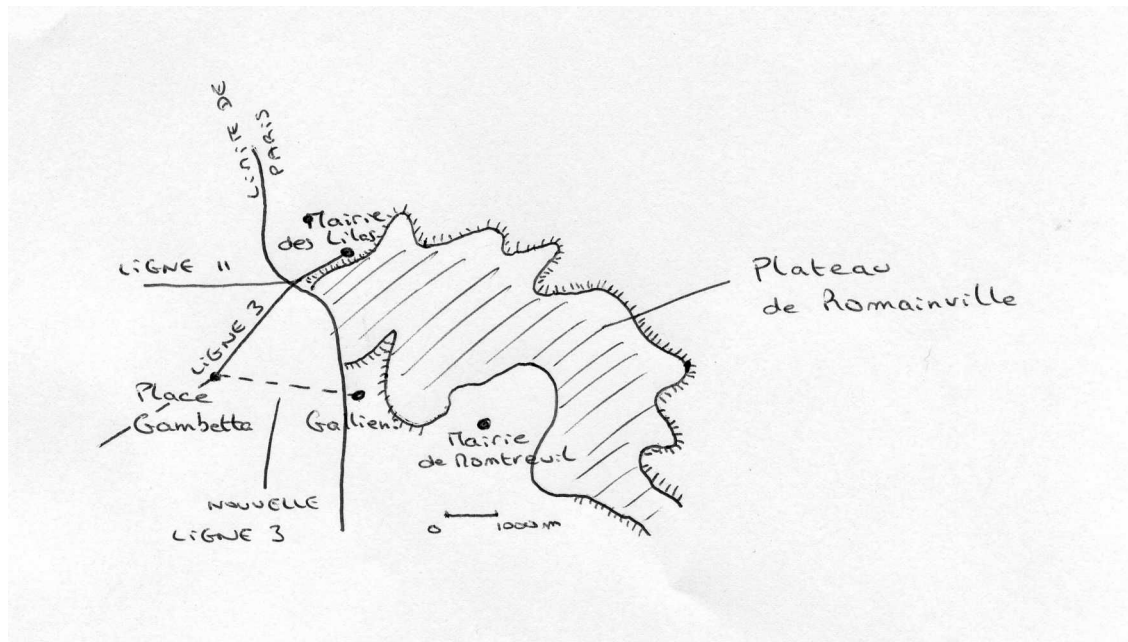 LIMITE DE
PARIS
Mairie
des Lilas
LIGNE 11
Plateau
de Romainville
LIGNE 3
Place
Gambetta
Gallieni
Mairie
de Montreuil
NOUVELLE
LIGNE 3
0 1000m